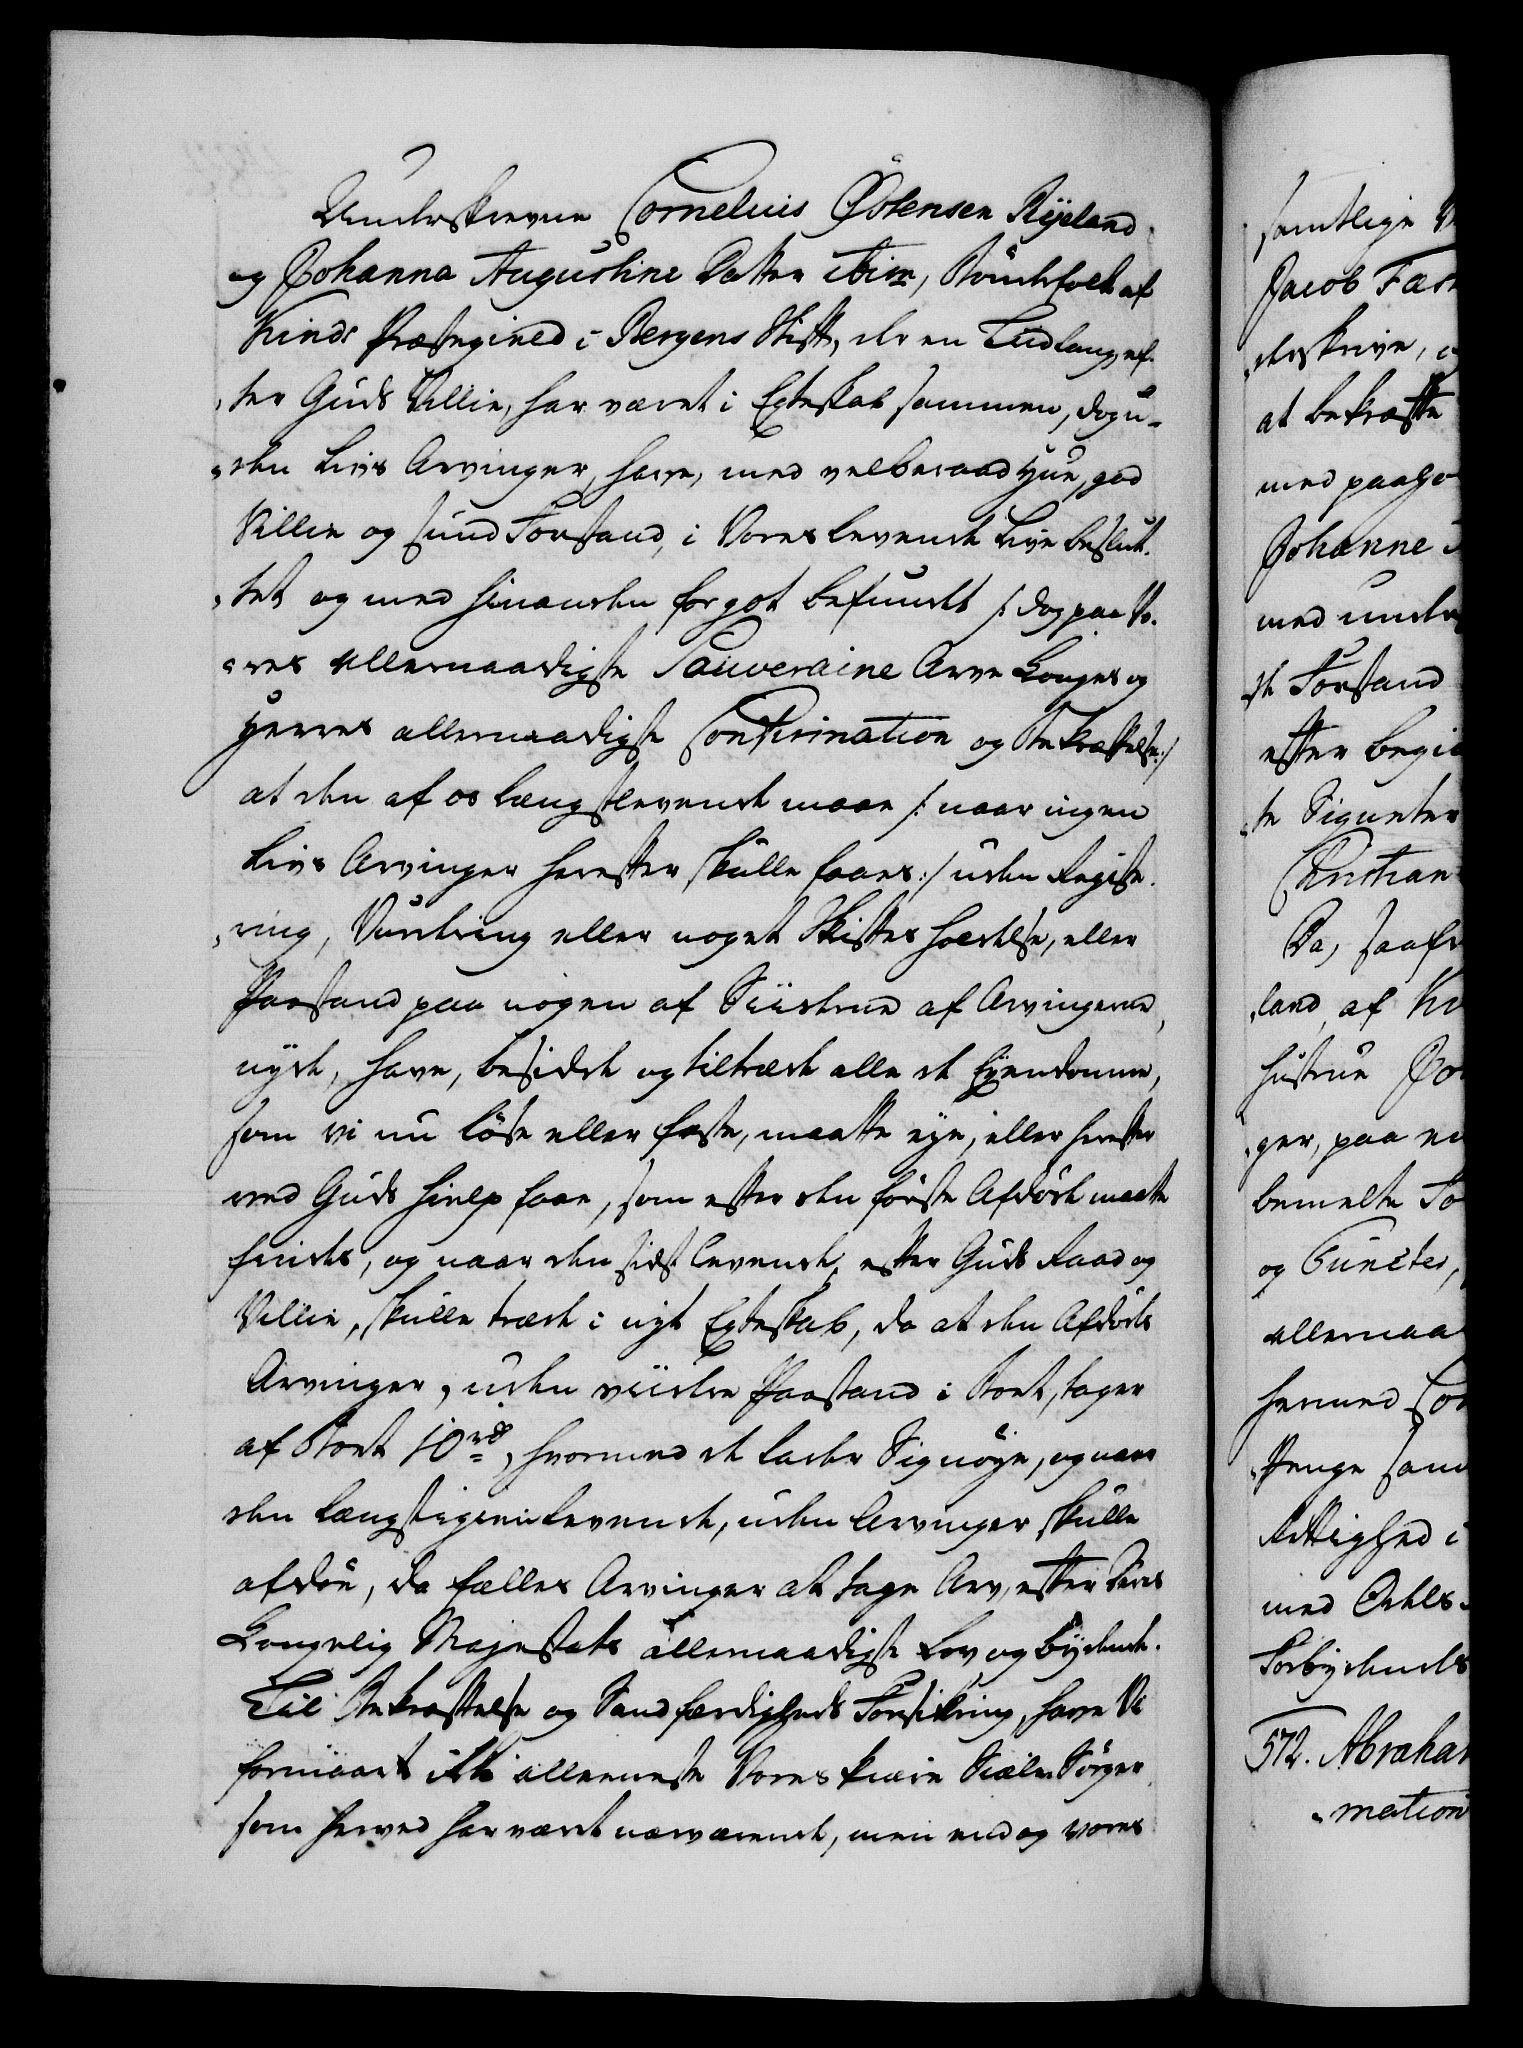 Underskrevne Cornelius Østensen Ryeland
og Johanna Augustine Datter ibi͞m, Bøndefolk af
Kinds Præstegield i Bergens Stift, der en Tiid lang ef-
ter Guds Villie, har været i Egteskab sammen, dog u-
den Livs Arvinger, have, med velberaad Hue, god
Villie og sund Forstand, i Vores levende Live beslut-
tet og med hinanden for got befundet /: dog paa Vo-
res Allernaadigste Souveraine Arve Konges og
Herres allernaadigste Confirmation og Bekræftelse :/
at den af os længstlevende maae /: naar ingen
Livs Arvinger herefter skulle faaes :/ uden Registe-
ring, Vurdering eller noget Skiftes holdelse, eller
Paastand paa nogen af Siiderne af Arvingerne,
nyde, have, besidde og tiltræde alle de Eyendomme,
som vi nu løse eller faste, maatte eye, eller herefter
med Guds hielp faae, som efter den første Afdøde maatte
findes, og naar den sidst levende, efter Guds Raad og
Villie, skulle træde i nyt Egteskab, da at den Afdødes
Arvinger, uden viidere Paastand i Boet, tager
af Boet 10 rd, hvormed de lader Sig nøye, og naar
den længst igien levende, uden Arvinger skulle
afdøe, da fælles Arvinger at tage Arv, efter Deres
Kongelig Majestæts allernaadigste Lov og bydende.
Til Bekræftelse og Sandfærdigheds Forsikring, have Vi
formaaet ikke alleneste Vores kiære Siæle Sørger
som herved har været nærværende, men end og vores
samtlige
Jacob Fær
derskrive,
at bekræfte
med paa
Johanne
med under
de Forstand
efter begie
te Signeter
Christian
Da, saafr
land, af Ki
hustrue Jo
ger, paa
bemelte
og Puncter,
allernaa
hermed Con
Penge sam
Rettighed i
med Ordets
Forbydende
572. Abraha
mation